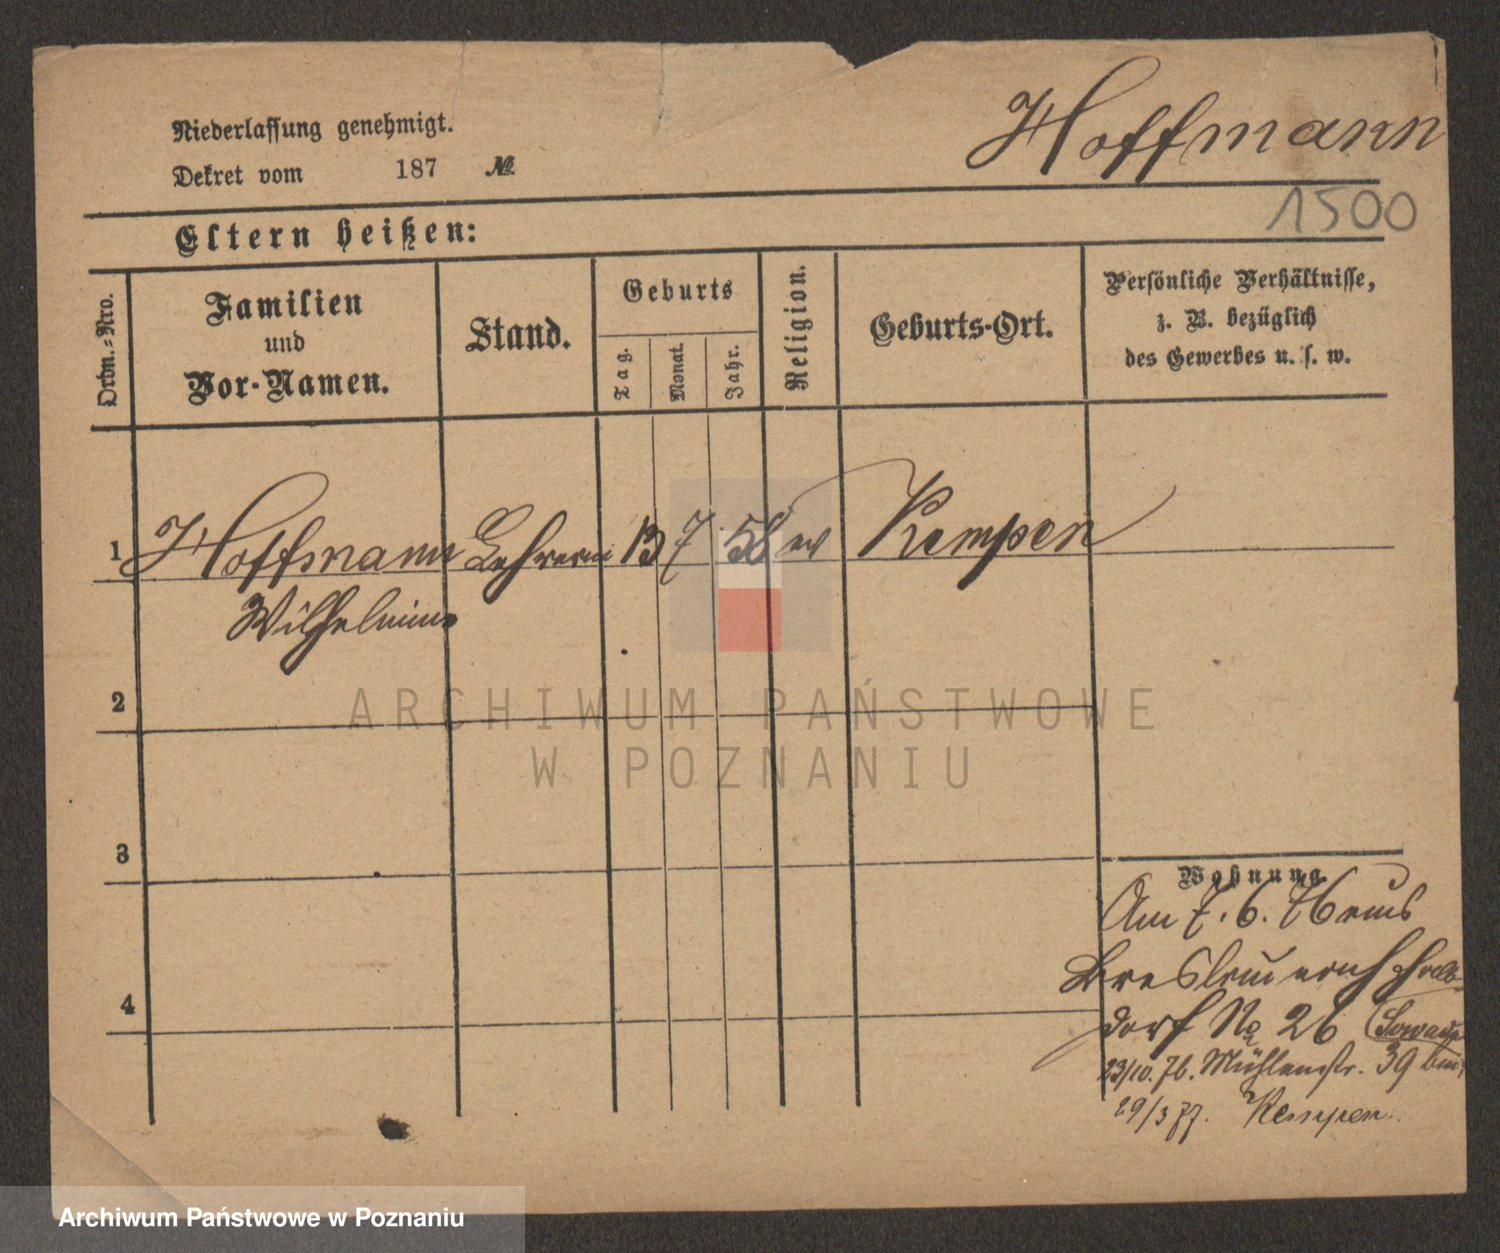 Niederlassung genehmigt.
Dekret vom 187 №
Hoffmann
1500
Eltern heißen:
Ordn.-Nro.
Familien
und
Vor-Namen.
Stand.
Geburts
Tag.
Monat.
Jahr.
Religion.
Geburts-Ort.
Persönliche Verhältnisse,
z. B. bezüglich
des Gewerbes u. s. w.
1 Hoffmann Lehrerin 13 7 58 ev Kempen
Wilhelmine
2
3
4
Wohnung
Am 7. 6. 76 aus
Breslau nach Halb-
dorf No 26
23/10. 76. Mühlenstr. 39 bei
29/3 77. Kempen.
ARCHIWUM PAŃSTWOWE
W POZNANIU
Archiwum Państwowe w Poznaniu